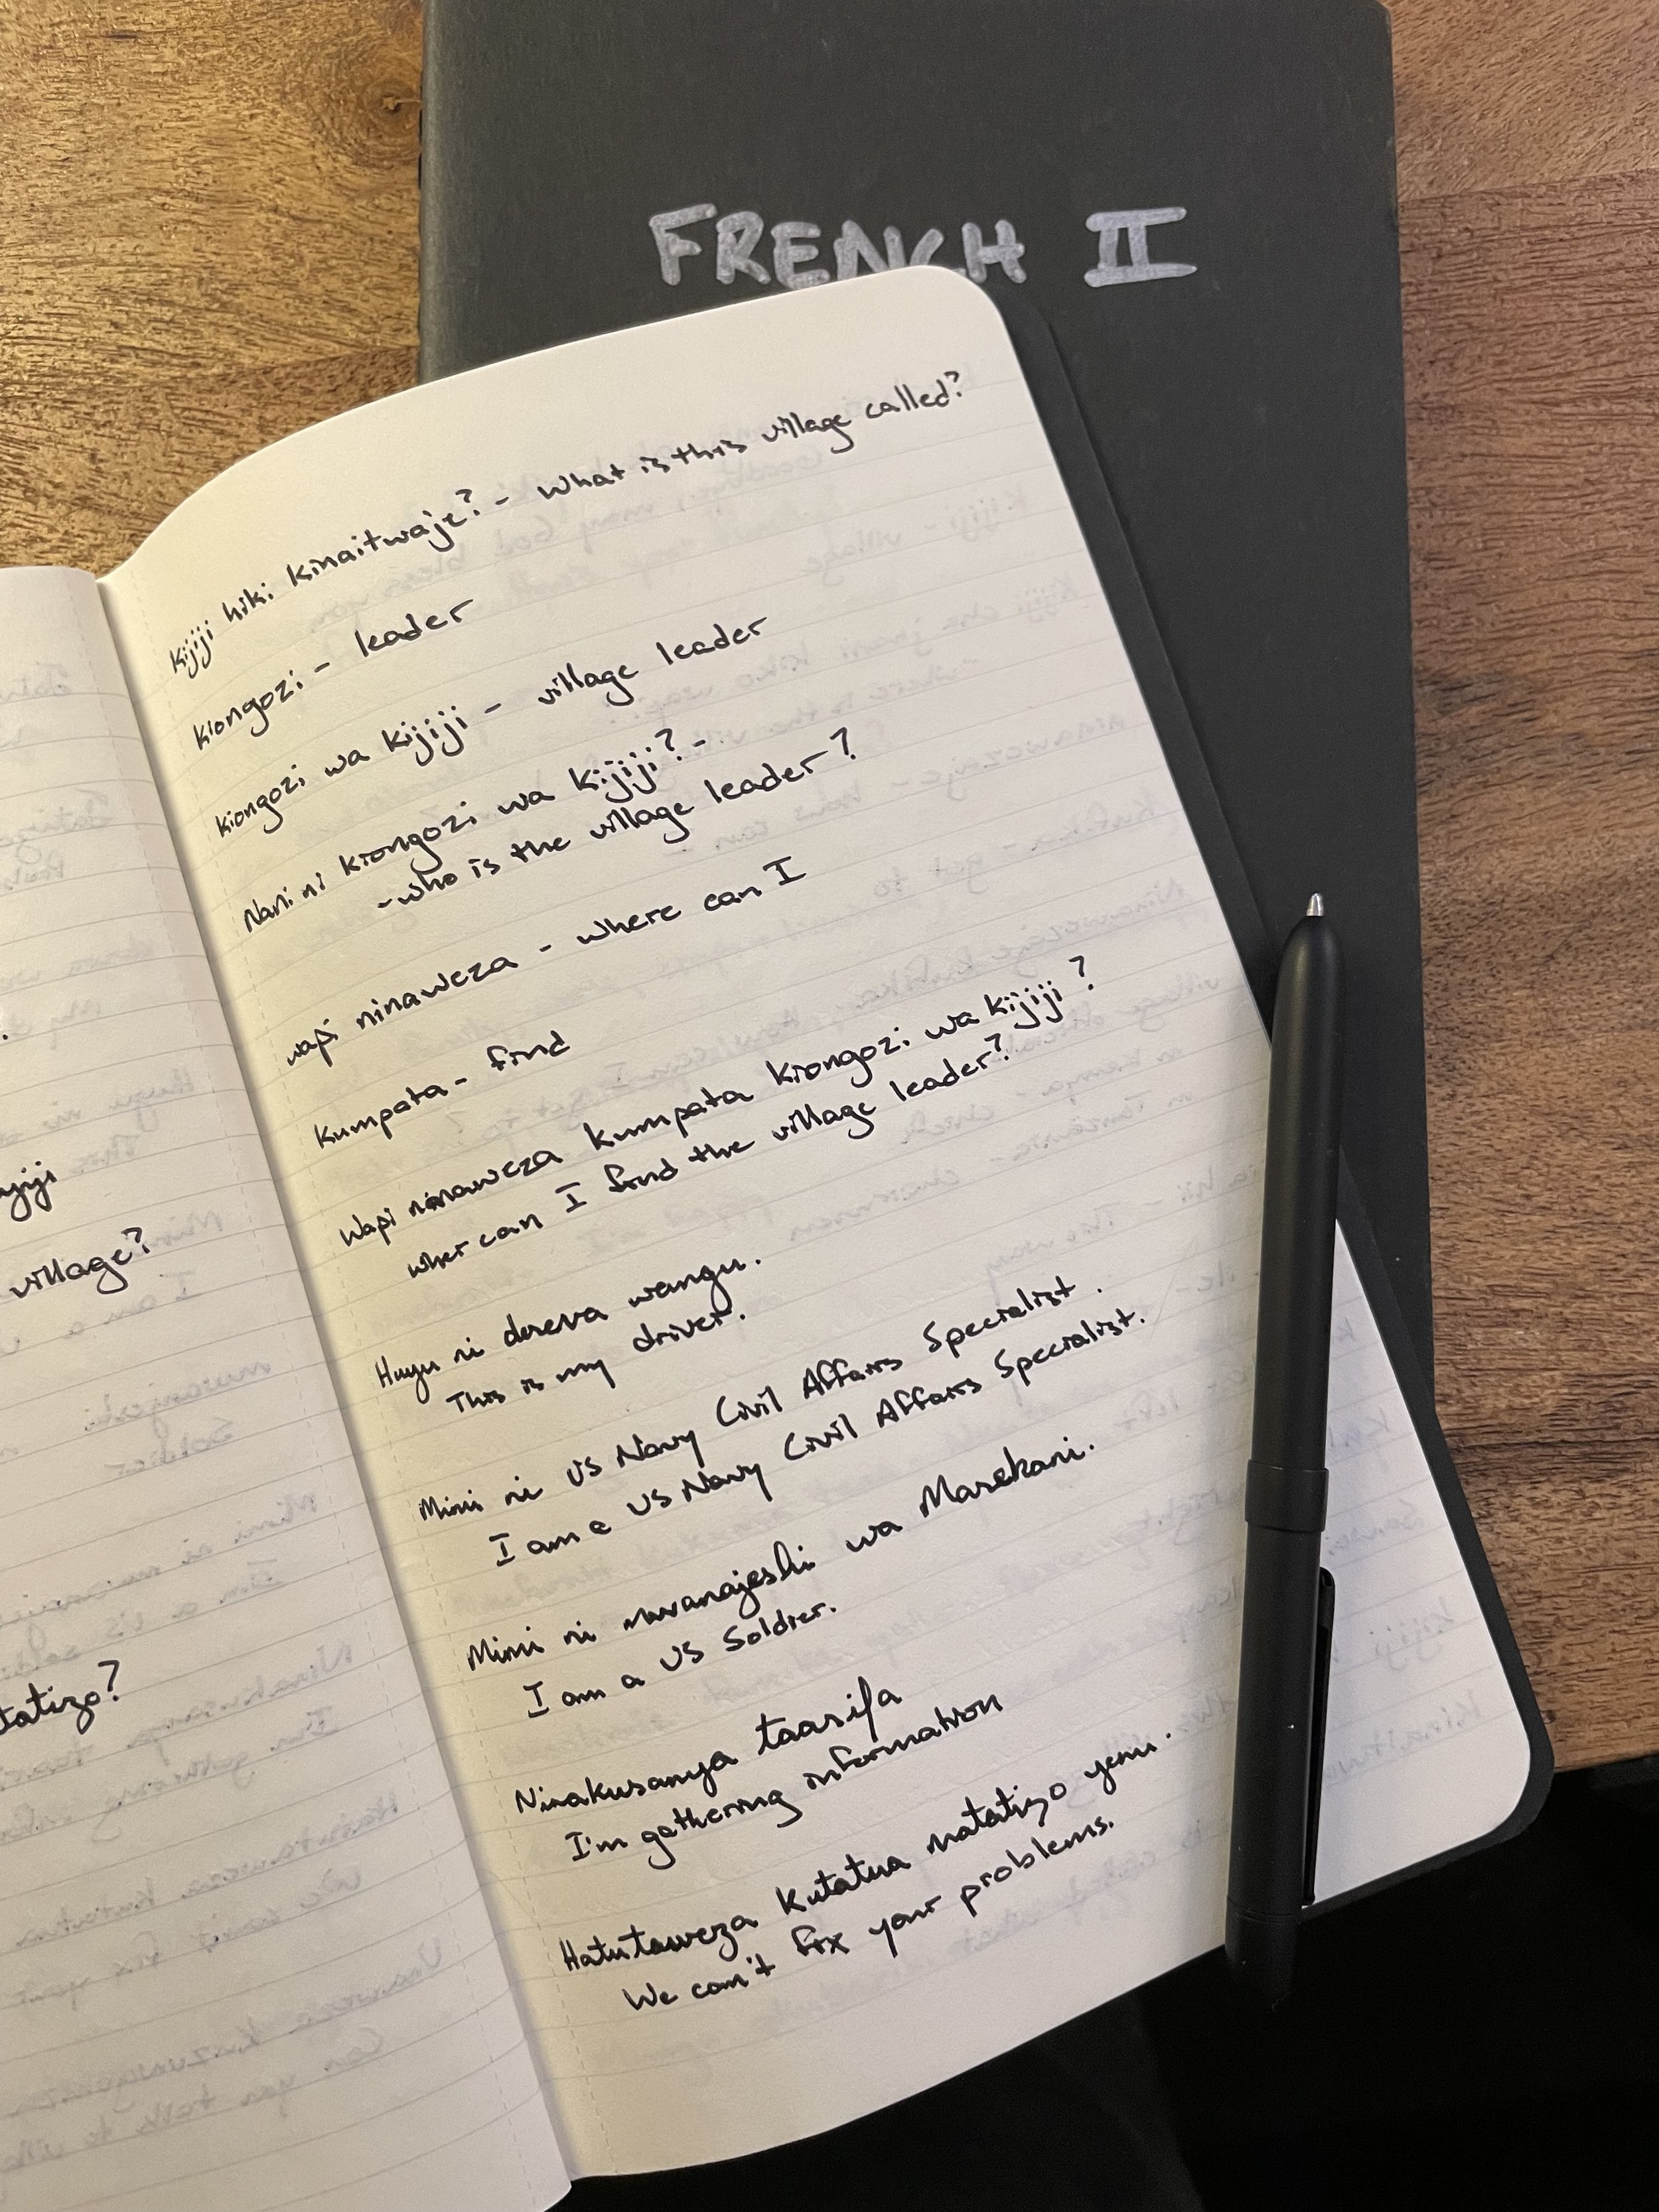 FRENCH II
Kijiji hiki kinaitwaje? - What is this village called?
Kiongozi - leader
Kiongozi wa kijiji - village leader
Nani ni kiongozi wa kijiji? -
- who is the village leader?
wapi ninaweza - where can I
Kumpata - find
Wapi ninaweza kumpata kiongozi wa kijiji?
wher can I find the village leader?
Huyu ni dereva wangu.
This is my driver.
Mimi ni US Navy Civil Affairs Specialist.
I am a US Navy Civil Affairs Specialist.
Mimi ni mwanajeshi wa Marekani.
I am a US Soldier.
Ninakusanya taarifa
I'm gathering information
Hatutaweza kutatua matatizo yenu.
We can't fix your problems.
village?
tatizo?